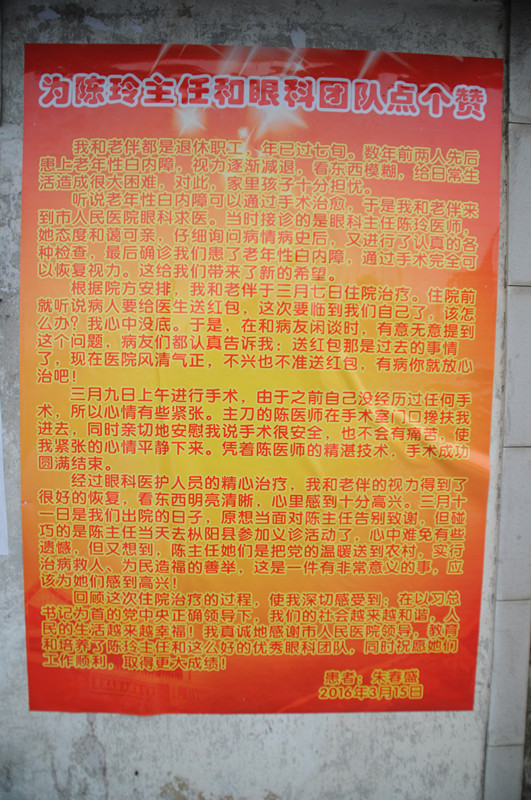 为陈玲主任和眼科团队点个赞
我和老伴都是退休职工，年已过七旬。数年前两人先后
患上老年性白内障，视力逐渐减退，看东西模糊，给日常生
活造成很大困难，对此，家里孩子十分担忧。
听说老年性白内障可以通过手术治愈，于是我和老伴来
到市人民医院眼科求医。当时接诊的是眼科主任陈玲医师，
她态度和蔼可亲，仔细询问病情病史后，又进行了认真的各
种检查，最后确诊我们患了老年性白内障，通过手术完全可
以恢复视力。这给我们带来了新的希望。
根据院方安排，我和老伴于三月七日住院治疗。住院前
就听说病人要给医生送红包，这次要临到我们自己了，该怎
么办？我心中没底。于是，在和病友闲谈时，有意无意提到
这个问题，病友们都认真告诉我：送红包那是过去的事情
了，现在医院风清气正，不兴也不准送红包，有病你就放心
治吧！
三月九日上午进行手术，由于之前自己没经历过任何手
术，所以心情有些紧张。主刀的陈医师在手术室门口搀扶我
进去，同时亲切地安慰我说手术很安全，也不会有痛苦，使
我紧张的心情平静下来。凭着陈医师的精湛技术，手术成功
圆满结束。
经过眼科医护人员的精心治疗，我和老伴的视力得到了
很好的恢复，看东西明亮清晰，心里感到十分高兴。三月十
一日是我们出院的日子，原想当面对陈主任告别致谢，但碰
巧的是陈主任当天去枞阳县参加义诊活动了，心中难免有些
遗憾，但又想到，陈主任她们是把党的温暖送到农村，实行
治病救人、为民造福的善举，这是一件有非常意义的事，应
该为她们感到高兴！
回顾这次住院治疗的过程，使我深切感受到：在以习总
书记为首的党中央正确领导下，我们的社会越来越和谐，人
民的生活越来越幸福！我真诚地感谢市人民医院领导，教育
和培养了陈玲主任和这么好的优秀眼科团队，同时祝愿她们
工作顺利，取得更大成绩！
患者：朱春盛
2016年3月15日